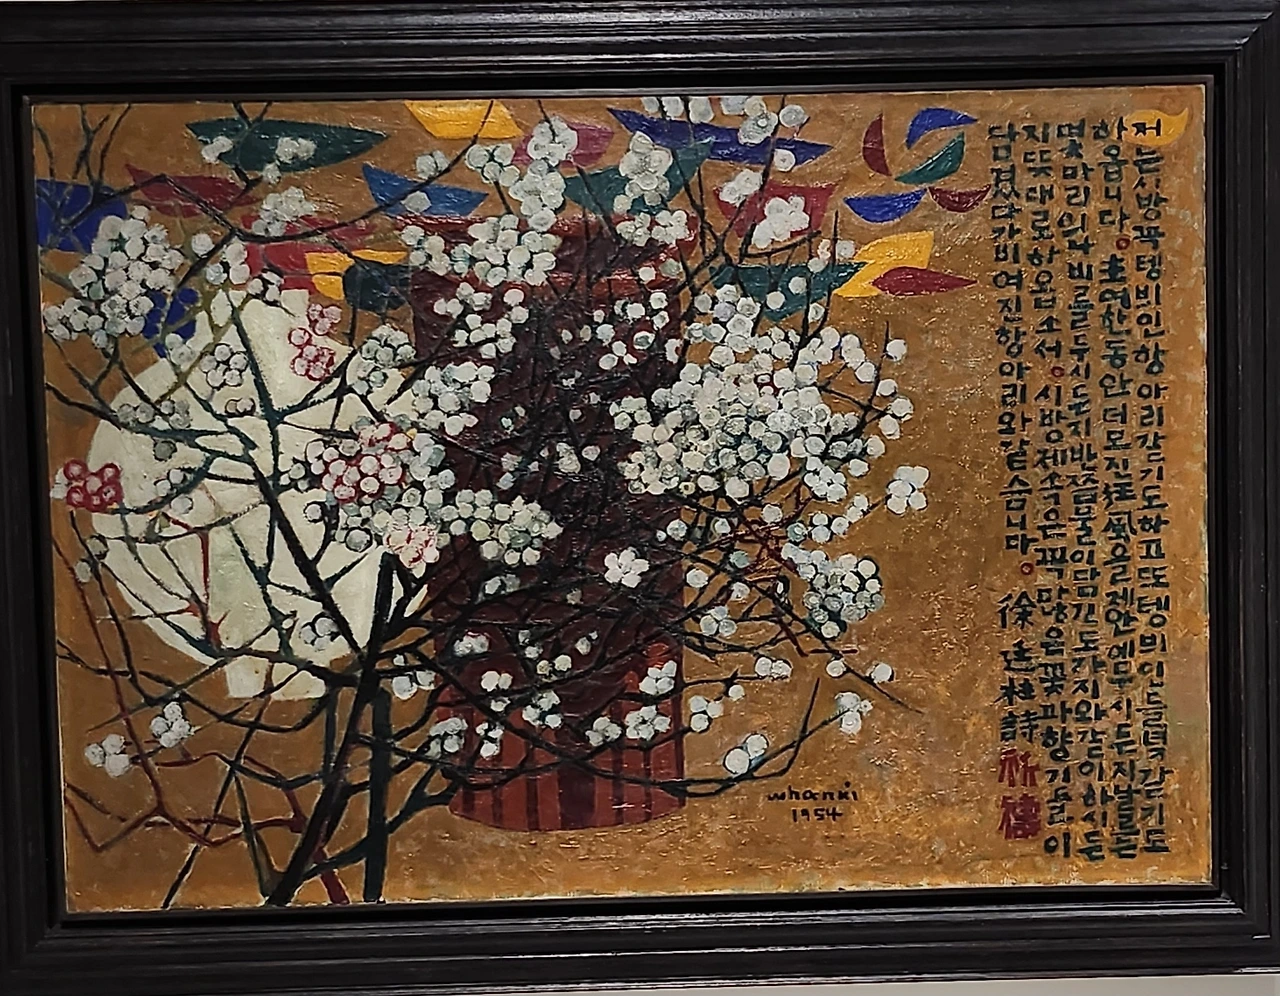 저는시방꼭텡븨인항아리같기도하고또텡븨인들녁같기도
하옵니다。主여한동안더모진狂風을제안에두시든지날르는
몇마리의나비를두시든지반쯤물이담긴도가지와같이하시든
지뜻대로하옵소서。시방제속은꼭많은꽃과향기들이
담겼다가비여진항아리와같습니다。徐廷柱詩 祈禱
whanki
1954